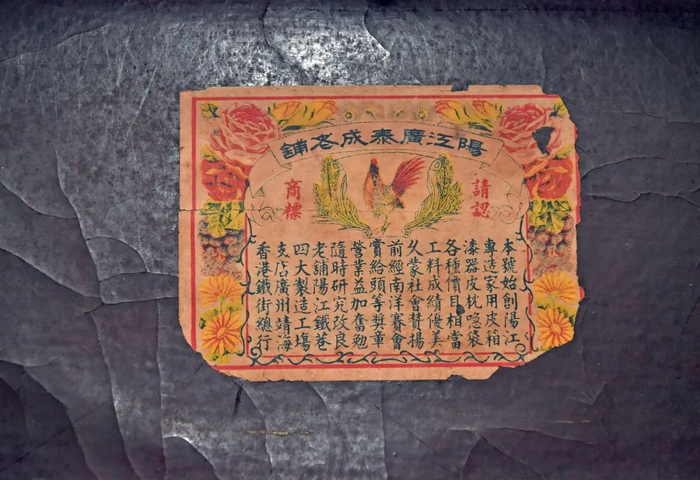 陽江廣泰成老舖
請認
商標
本號始創陽江
專造家用皮箱
漆器皮枕喼袋
各種價目相當
工料成績優美
久蒙社會贊揚
前經南洋賽會
賞給頭等獎章
營業益加奮勉
隨時研究改良
老舖陽江鐵巷
四大製造工塲
支店廣州靖海
香港鐵街總行